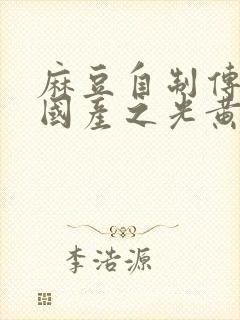 麻豆自制傳
國產之光黃
李浩源